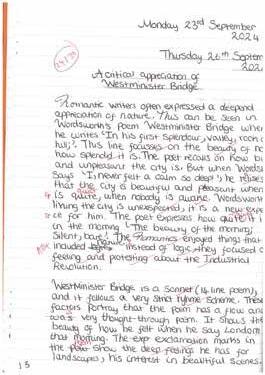 Monday 23rd September
2024
Thursday 26th Septem
202
A critical appreciation of
Westminister Bridge
Romantic writers often expressed a deepend
appreciation of nature. This can be seen in
Wordsworth's poem Westminister Bridge wher
he writes 'In his first splendour, valley, rock o
hill;'. This line focusses on the beauty of na
how splendid it is. The poet recalls on how bi
and unpleasant the city is. But when Words
Says 'I never felt a calm so deep', he
that the city is beautiful and pleasant when
is quite, when nobody is awake. Wordswort
living the city is unexpected, it is a new expe
ce for him. The poet expresses how quite it i
in the morning 'The beauty of the morning;
Silent, bare'. The Romantics enjoyed things that
included instead of logic, they focused o
feeling and protesting about the Industrial
Revolution.
Westminister Bridge is a Sonnet (14 line poem),
and it follows a very strict rhyme scheme. These
factors portray that the poem has a flow and
was very thought-through poem. It shows th
beauty of how he felt when he say London
that morning. The exclamation marks in
the show the deep feelings he has for
landscapes, his interest in beautiful scenes.